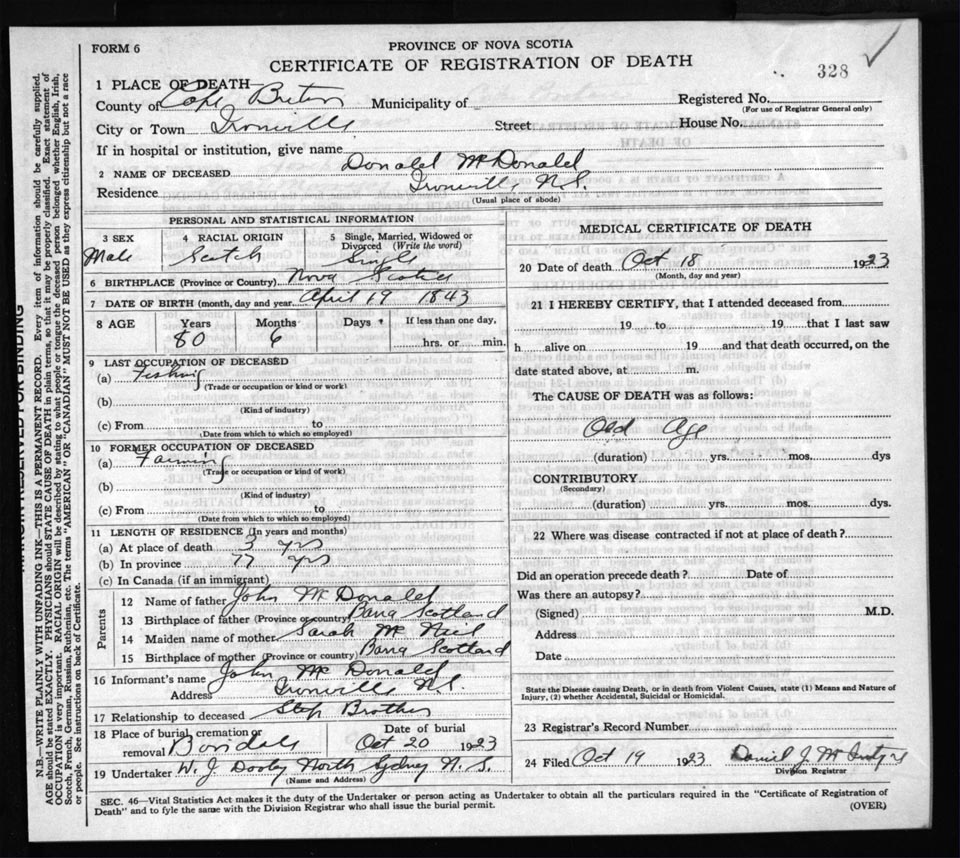 FORM 6
PROVINCE OF NOVA SCOTIA
CERTIFICATE OF REGISTRATION OF DEATH
328
1 PLACE OF DEATH
County of Cape Breton Municipality of Registered No.
(For use of Registrar General only)
City or Town Ironville Street House No.
If in hospital or institution, give name
2 NAME OF DECEASED Donald McDonald
Residence Ironville N.S.
(Usual place of abode)
PERSONAL AND STATISTICAL INFORMATION
3 SEX 4 RACIAL ORIGIN 5 Single, Married, Widowed or Divorced (Write the word)
Male Scotch Single
6 BIRTHPLACE (Province or Country) Nova Scotia
7 DATE OF BIRTH (month, day and year) April 19 1843
8 AGE Years Months Days If less than one day,
80 6 hrs. or min.
9 LAST OCCUPATION OF DECEASED
(a) Fishing
(Trade or occupation or kind of work)
(b)
(Kind of industry)
(c) From to
(Date from which to which so employed)
10 FORMER OCCUPATION OF DECEASED
(a) Farming
(Trade or occupation or kind of work)
(b)
(Kind of industry)
(c) From to
(Date from which to which so employed)
11 LENGTH OF RESIDENCE (In years and months)
(a) At place of death 3 yrs
(b) In province 77 yrs
(c) In Canada (if an immigrant)
Parents
12 Name of father John McDonald
13 Birthplace of father (Province or country) Barra Scotland
14 Maiden name of mother Sarah McNeil
15 Birthplace of mother (Province or country) Barra Scotland
16 Informant's name John McDonald
Address Ironville N.S.
17 Relationship to deceased Step Brother
18 Place of burial, cremation or removal Boisdale Date of burial Oct 20 1923
19 Undertaker W. J. Dooley North Sydney N.S.
(Name and Address)
MEDICAL CERTIFICATE OF DEATH
20 Date of death Oct 18 1923
(Month, day and year)
21 I HEREBY CERTIFY, that I attended deceased from
19 to 19 that I last saw
h alive on 19 and that death occurred, on the
date stated above, at m.
The CAUSE OF DEATH was as follows:
Old Age
(duration) yrs. mos. dys
CONTRIBUTORY
(Secondary)
(duration) yrs. mos. dys.
22 Where was disease contracted if not at place of death?
Did an operation precede death? Date of
Was there an autopsy?
(Signed) M.D.
Address
Date
State the Disease causing Death, or in death from Violent Causes, state (1) Means and Nature of
Injury, (2) whether Accidental, Suicidal or Homicidal.
23 Registrar's Record Number
24 Filed Oct 19 1923 Daniel J. McIntyre
Division Registrar
SEC. 46—Vital Statistics Act makes it the duty of the Undertaker or person acting as Undertaker to obtain all the particulars required in the "Certificate of Registration of
Death" and to fyle the same with the Division Registrar who shall issue the burial permit.
(OVER)
MARGIN RESERVED FOR BINDING
N.B.—WRITE PLAINLY WITH UNFADING INK—THIS IS A PERMANENT RECORD. Every item of information should be carefully supplied.
AGE should be stated EXACTLY. PHYSICIANS should STATE CAUSE OF DEATH in plain terms, so that it may be properly classified. Exact statement of
OCCUPATION is very important. RACIAL ORIGIN will be described by stating to what people or tongue the deceased person belonged whether English, Irish,
Scotch, French, German, Russian, Ruthenian, etc. The terms "AMERICAN" OR "CANADIAN" MUST NOT BE USED as they express citizenship but not a race
or people. See instructions on back of Certificate.